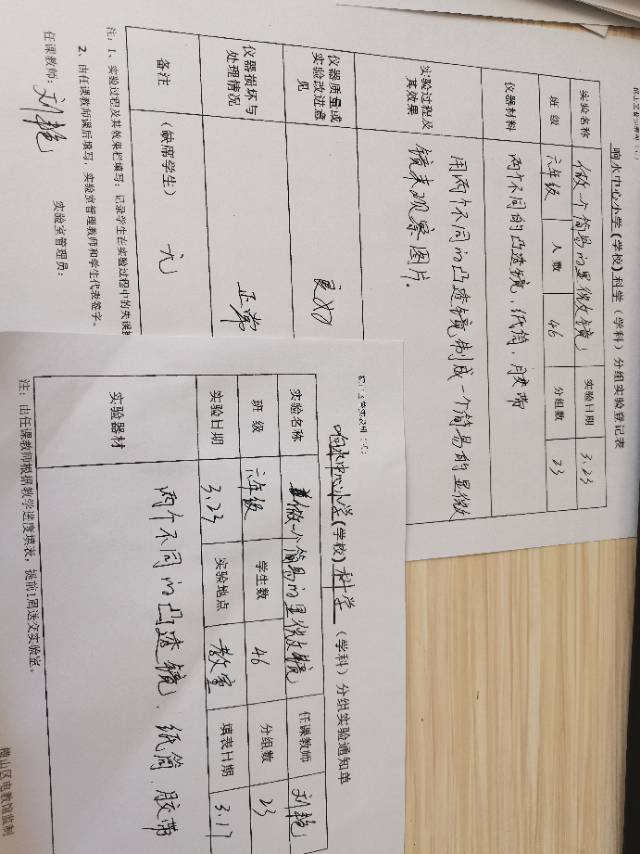 响水中心小学(学校)科学(学科)分组实验登记表
实验名称 做一个简易的显微镜 实验日期 3.23
班级 六年级 人数 46 分组数 23
仪器材料 两个不同的凸透镜、纸筒、胶带
实验过程及其效果 用两个不同的凸透镜制成一个简易的显微
镜来观察图片。
仪器质量或实验改进意见 良好
仪器损坏与处理情况 正常
备注 (缺席学生) 无
注:1、实验过程及其效果栏填写:记录学生在实验过程中的失误
2、由任课教师课后填写,实验室管理教师和学生代表签字。
任课教师:刘艳 实验室管理员:
响水中心小学(学校)科学(学科)分组实验通知单
实验名称 做一个简易的显微镜 任课教师 刘艳
班级 六年级 学生数 46 分组数 23
实验日期 3.23 实验地点 教室 填表日期 3.17
实验器材 两个不同的凸透镜、纸筒、胶带
注:由任课教师根据教学进度填表,提前1周送交实验室。
山区电教馆监制